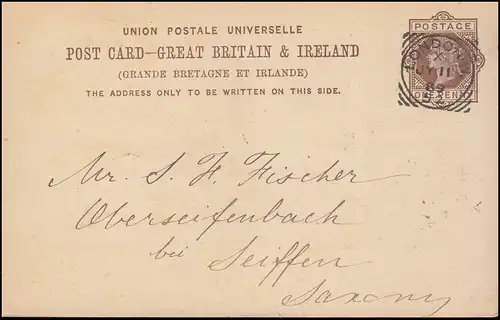 UNION POSTALE UNIVERSELLE
POST CARD—GREAT BRITAIN & IRELAND
(GRANDE BRETAGNE ET IRLANDE)
THE ADDRESS ONLY TO BE WRITTEN ON THIS SIDE.
POSTAGE
ONE PENNY
LONDON
X
JY 11
89
52
Mr. S. F. Fischer
Oberseifenbach
bei Seiffen
Saxony